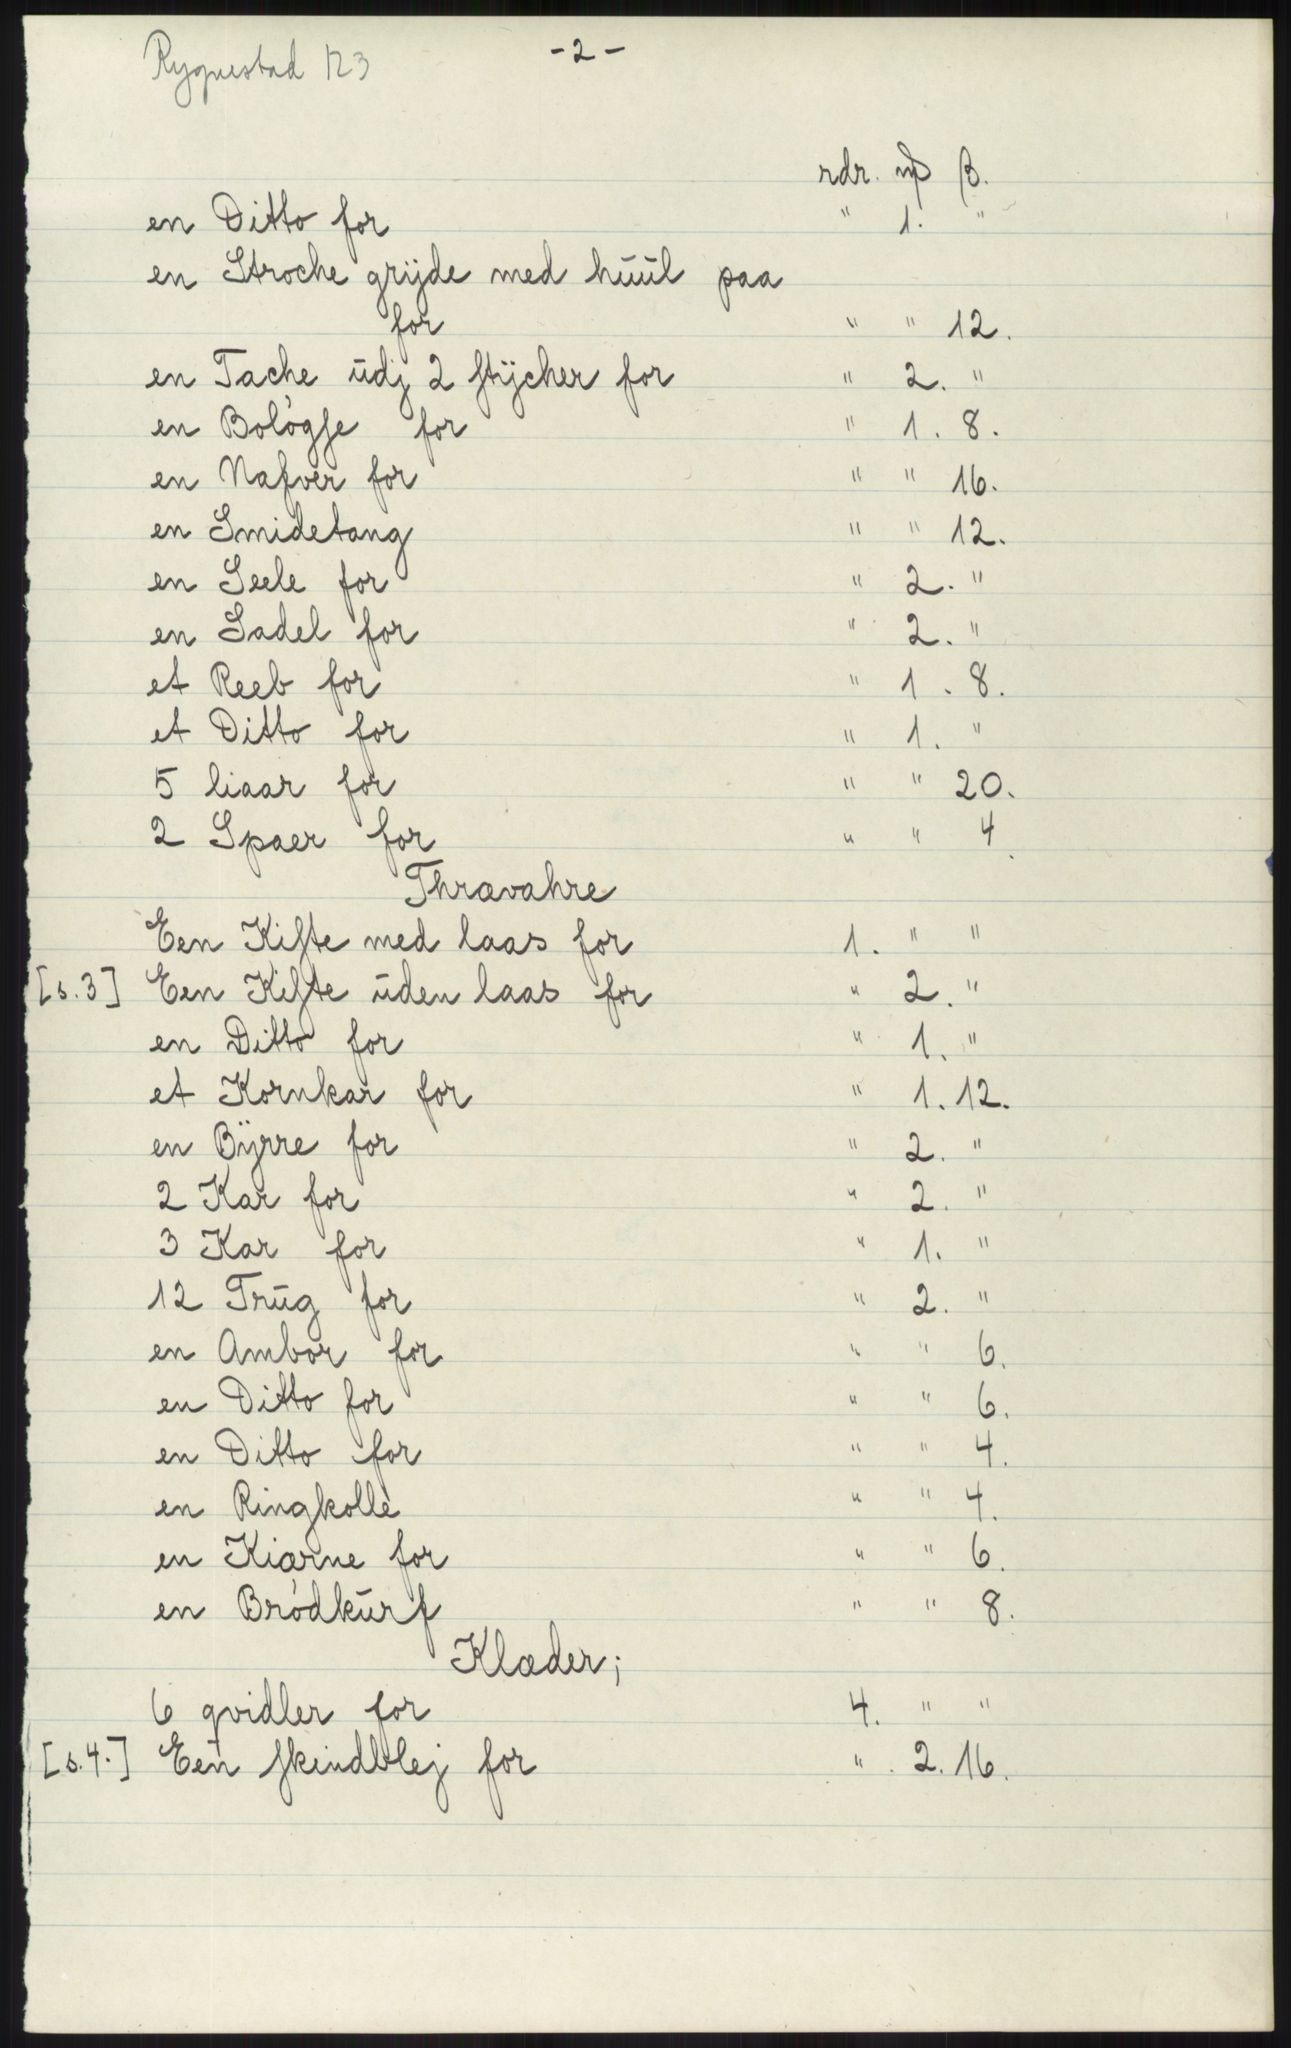 Rygnestad 123 -2-
rdr. mþ β.
en Ditto for " 1. "
en Stroche grÿde med huul paa
for " " 12.
en Tache udj 2 stÿcher for " 2. "
en Bológse for " 1. 8.
en Nafver for " " 16.
en Smidetang " " 12.
en Seele for " 2. "
en Sadel for " 2. "
et Reeb for " 1. 8.
et Ditto for " 1. "
5 liaar for " " 20.
2 Spaer for " " 4.
Thrævahre
Een Kiste med laas for 1. " "
[s.3] Een Kiste uden laas for " 2. "
en Ditto for " 1. "
et Kornkar for " 1. 12.
en Bÿrre for " 2. "
2 Kar for " 2. "
3 Kar for " 1. "
12 Trug for " 2. "
en Ambor for " " 6.
en Ditto for " " 6.
en Ditto for " " 4.
en Ringkolle " " 4.
en Kiærne for " " 6.
en Bródkurf " " 8.
Klæder;
6 qvidler for 4. " "
[s.4.] Een skindblej for " 2. 16.